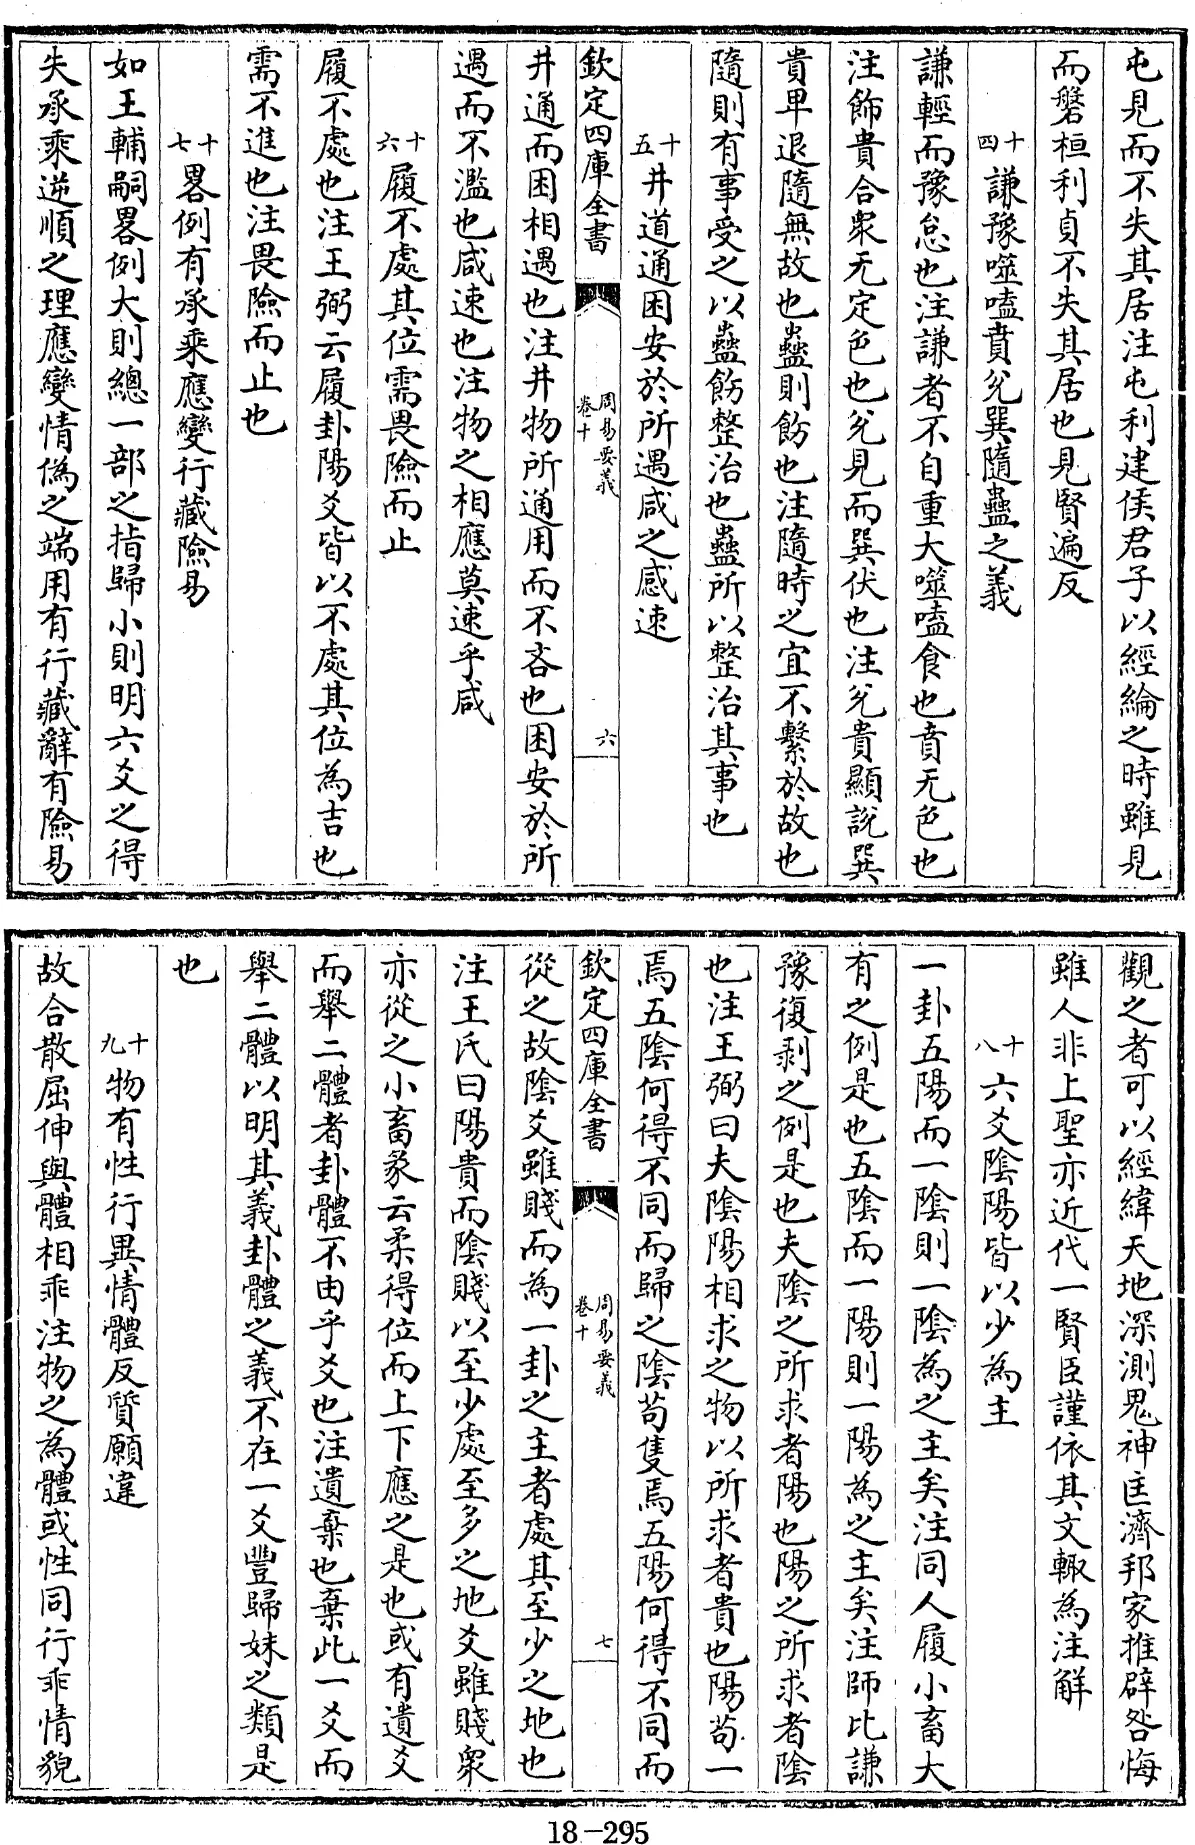 屯見而不失其居注屯利建侯君子以經綸之時雖見
而磐桓利貞不失其居也見賢遍反
十四 謙豫噬嗑賁兊巽隨蠱之義
謙輕而豫怠也注謙者不自重大噬嗑食也賁无色也
注飾貴合衆无定色也兊見而巽伏也注兊貴顯說巽
貴卑退隨無故也蠱則飭也注隨時之宜不繫於故也
隨則有事受之以蠱飭整治也蠱所以整治其事也
十五 井道通困安於所遇咸之感速
欽定四庫全書
周易要義
卷十
六
井通而困相遇也注井物所通用而不吝也困安於所
遇而不濫也咸速也注物之相應莫速乎咸
十六 履不處其位需畏險而止
履不處也注王弼云履卦陽爻皆以不處其位為吉也
需不進也注畏險而止也
十七 畧例有承乘應變行藏險易
如王輔嗣畧例大則總一部之指歸小則明六爻之得
失承乘逆順之理應變情偽之端用有行藏辭有險易
觀之者可以經緯天地深測鬼神匡濟邦家推辟咎悔
雖人非上聖亦近代一賢臣謹依其文輙為注解
十八 六爻陰陽皆以少為主
一卦五陽而一陰則一陰為之主矣注同人履小畜大
有之例是也五陰而一陽則一陽為之主矣注師比謙
豫復剥之例是也夫陰之所求者陽也陽之所求者陰
也注王弼曰夫陰陽相求之物以所求者貴也陽苟一
焉五陰何得不同而歸之陰苟隻焉五陽何得不同而
欽定四庫全書
周易要義
卷十
七
從之故陰爻雖賤而為一卦之主者處其至少之地也
注王氏曰陽貴而陰賤以至少處至多之地爻雖賤衆
亦從之小畜彖云柔得位而上下應之是也或有遺爻
而舉二體者卦體不由乎爻也注遺棄也棄此一爻而
舉二體以明其義卦體之義不在一爻豐歸妹之類是
也
十九 物有性行異情體反質願違
故合散屈伸與體相乖注物之為體或性同行乖情貌
18-295